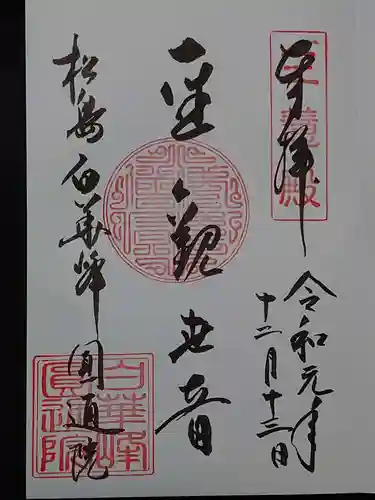 奉拝
三慧殿
令和元年
十二月十三日
聖観世音
松島白華峰圓通院
白華峰
圓通院